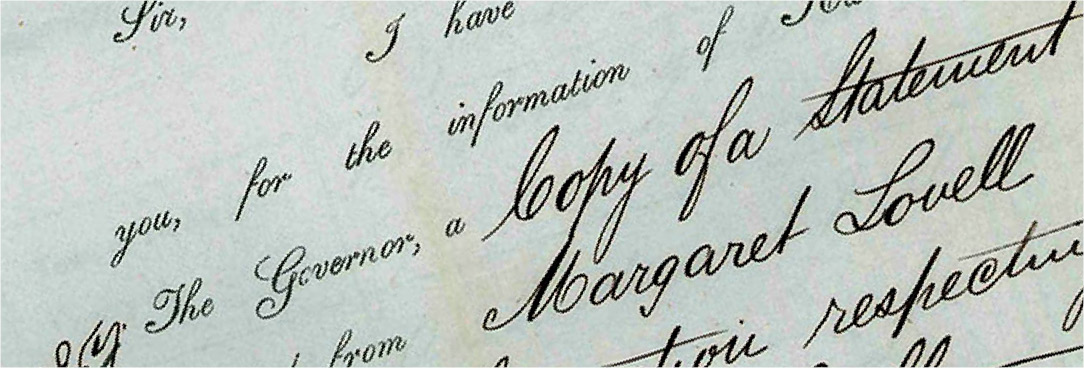 Sir,
I have
you, for the information of
The Governor, a Copy of a Statement
from Margaret Lovell
respecting